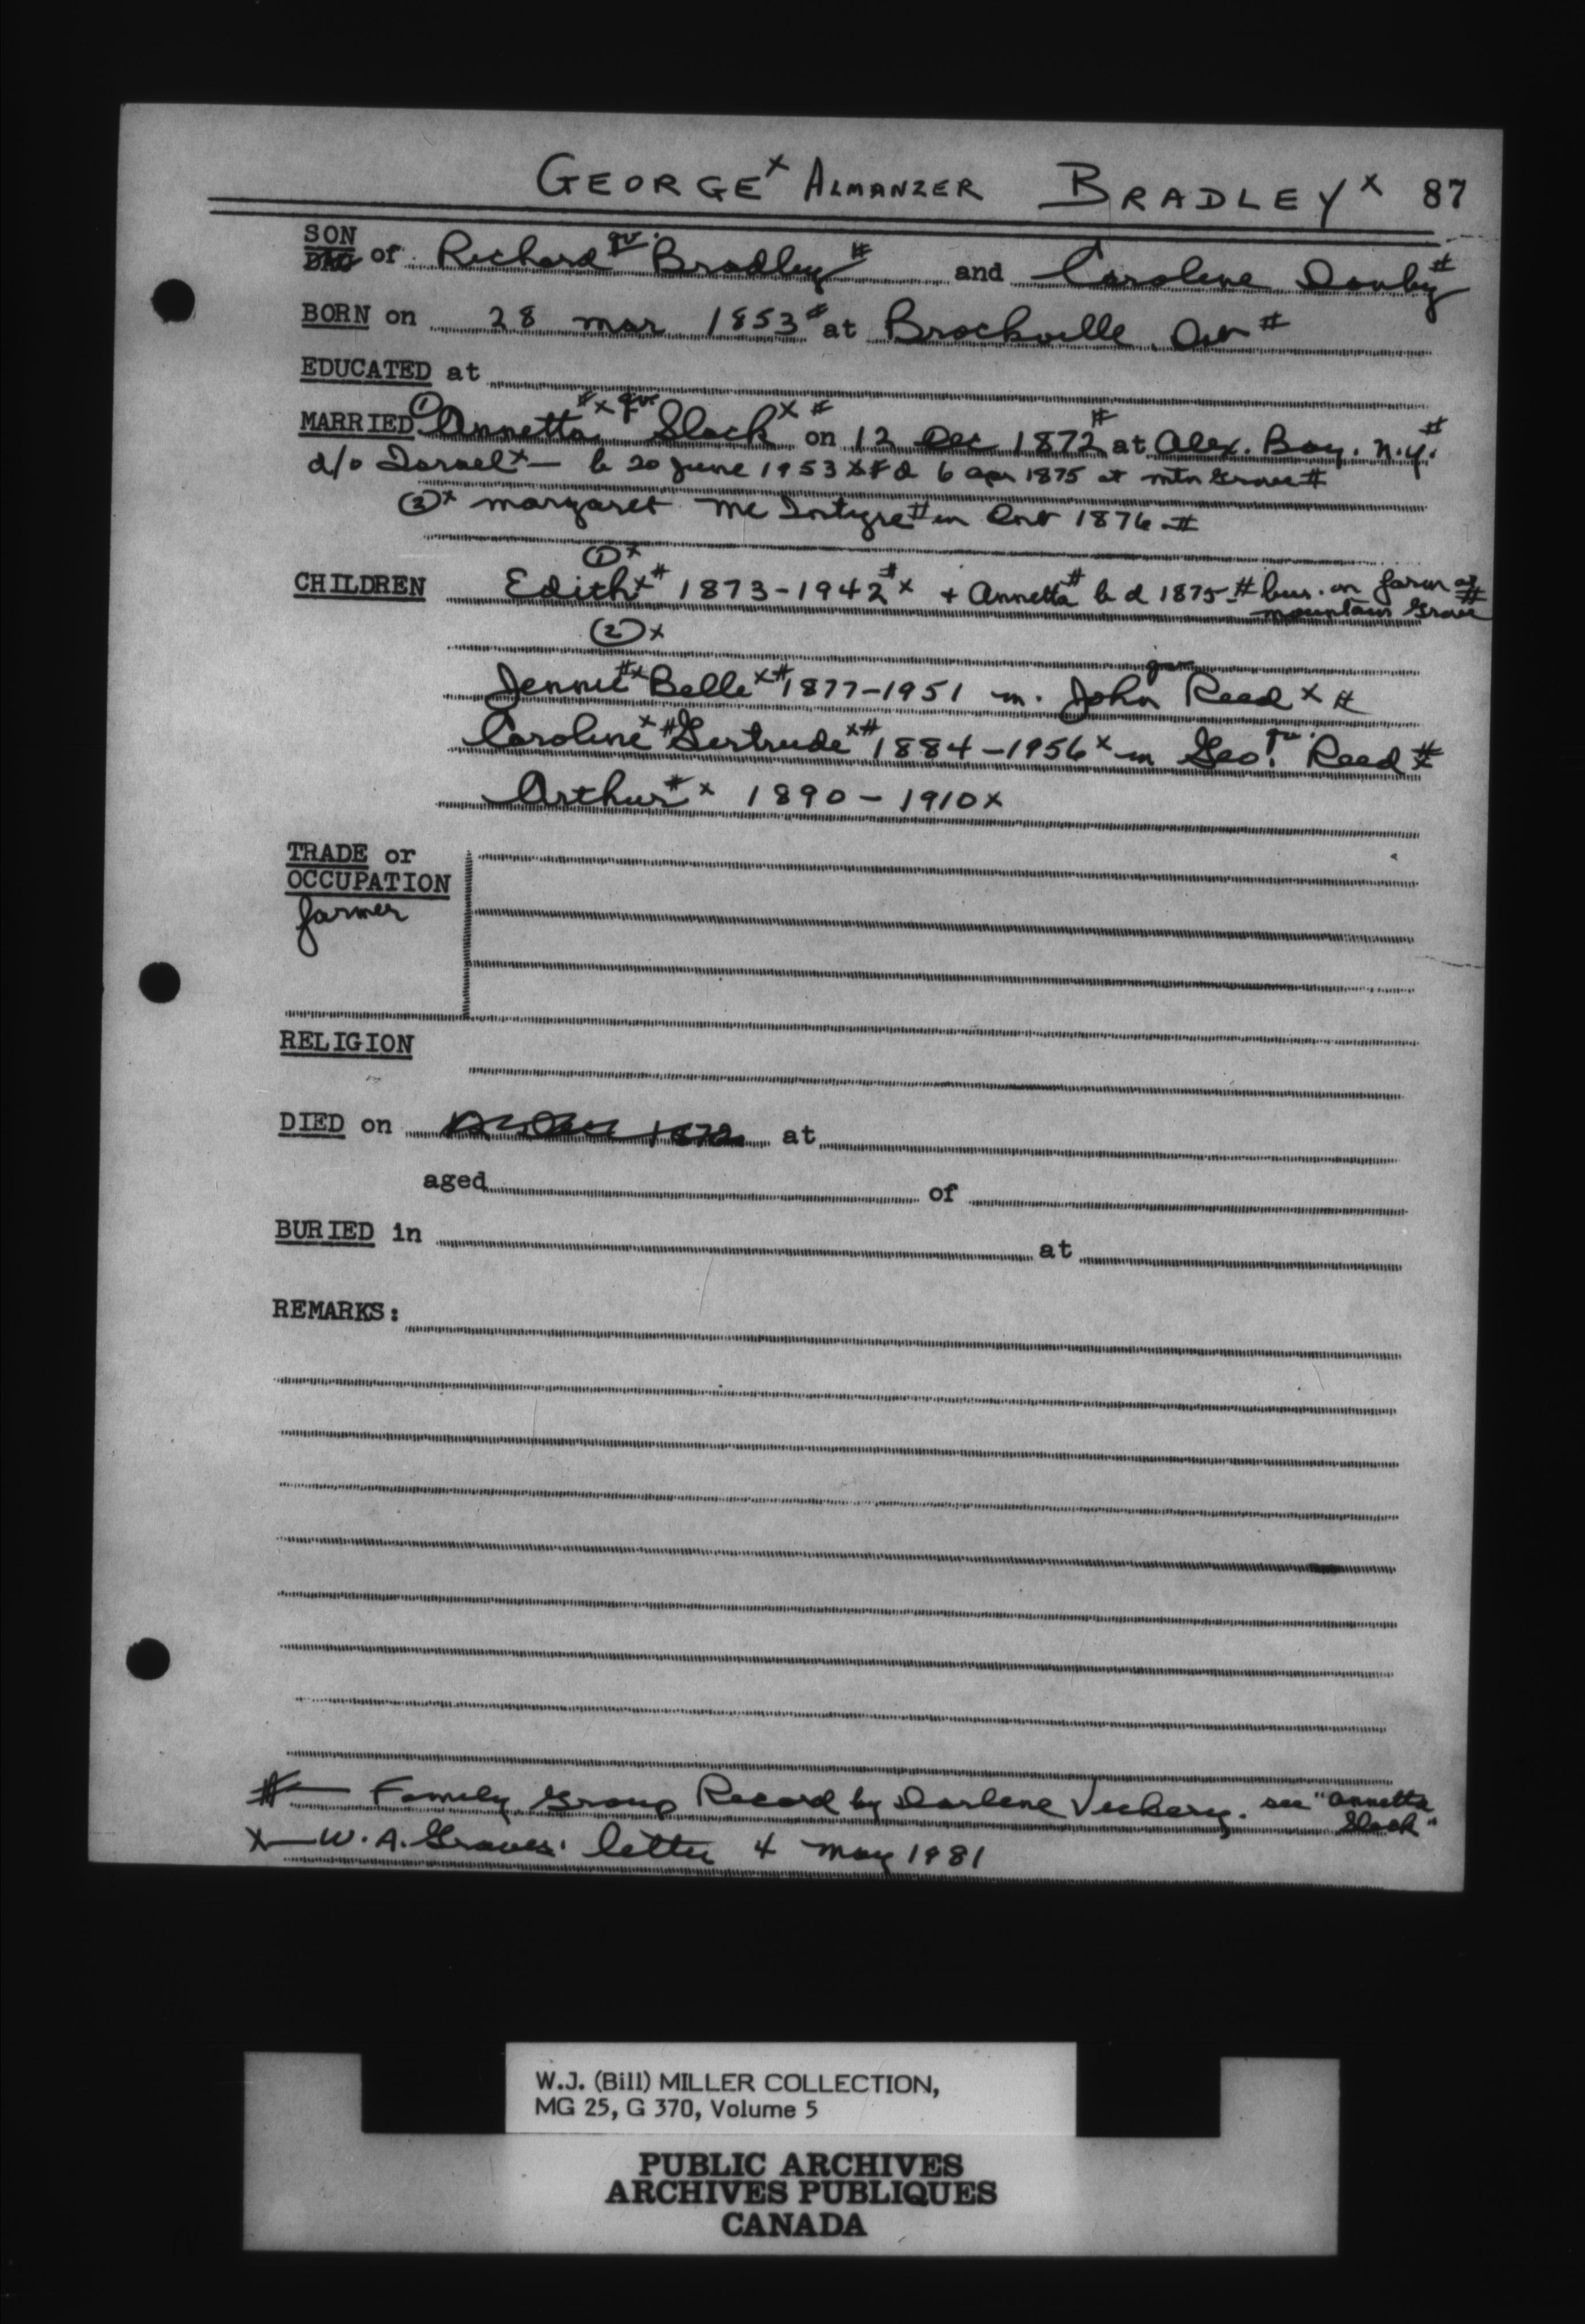 GEORGE x ALMANZER BRADLEY x 87
SON
DAU of Richard qv. Bradley # and Caroline Danby #
BORN on 28 Mar 1853 # at Brockville Ont #
EDUCATED at
MARRIED (1) Annetta # x qv Slack x # on 12 Dec 1872 # at Alex. Bay. N.Y. #
d/o Israel x — b 20 June 1953 x # d 6 Apr 1875 at Mtn Grove #
(2) x Margaret McIntyre # in Ont 1876 #
(1) x
CHILDREN Edith x # 1873-1942 # x + Annetta # b d 1875 # bur. on farm at
Mountain Grove #
(2) x
Jennie # x Belle x # 1877-1951 m. John qv Reed x #
Caroline x # Gertrude x # 1884-1956 x m Geo. qv. Reed #
Arthur # x 1890-1910 x
TRADE or
OCCUPATION
farmer
RELIGION
DIED on 1872 at
aged of
BURIED in at
REMARKS:
# — Family Group Record by Darlene Vickery. see "Annetta
Slack"
x — W.A. Graves' letter 4 May 1981
W.J. (Bill) MILLER COLLECTION,
MG 25, G 370, Volume 5
PUBLIC ARCHIVES
ARCHIVES PUBLIQUES
CANADA